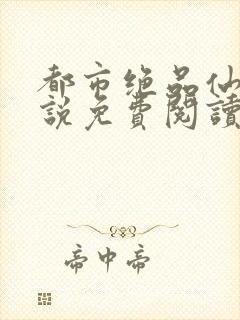 都市绝品仙
說免費閱讀
帝中帝